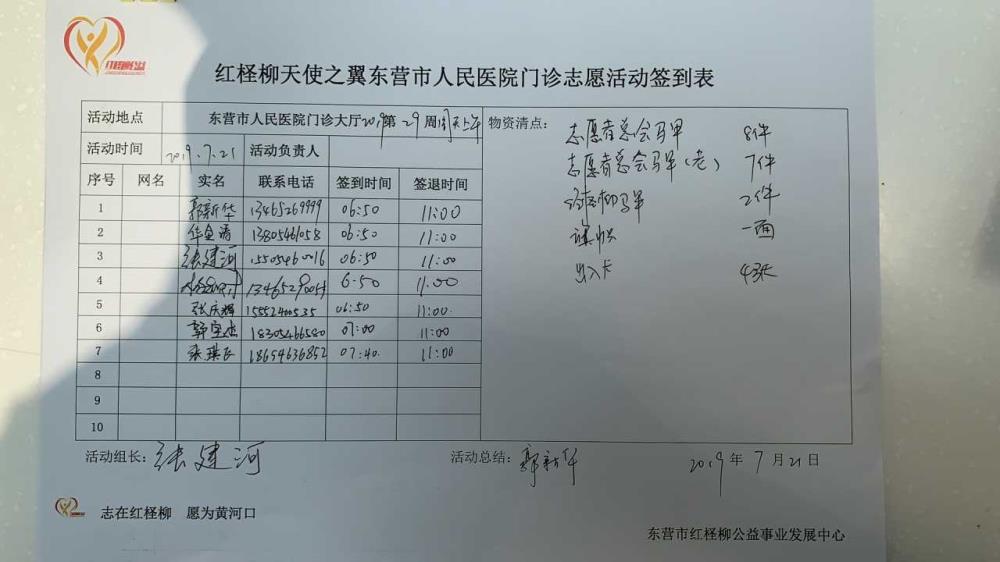 红柽柳天使之翼东营市人民医院门诊志愿活动签到表
活动地点 东营市人民医院门诊大厅2019第29周周天上午 物资清点:
志愿者总会马甲 8件
活动时间 2019.7.21 活动负责人
志愿者总会马甲(老) 7件
序号 网名 实名 联系电话 签到时间 签退时间
马甲 2件
1 郭新华 13465269999 06:50 11:00
2 华 13805461058 06:50 11:00
旗帜 一面
3 张建河 15505460016 06:50 11:00
出入卡 4张
4 6-50 11:00
5 张庆辉 15552400535 06:50 11:00
6 郭宝 18305466580 07:00 11:00
7 18654636852 07:40 11:00
8
9
10
活动组长: 张建河 活动总结: 郭新华 2019年7月21日
志在红柽柳 愿为黄河口
东营市红柽柳公益事业发展中心